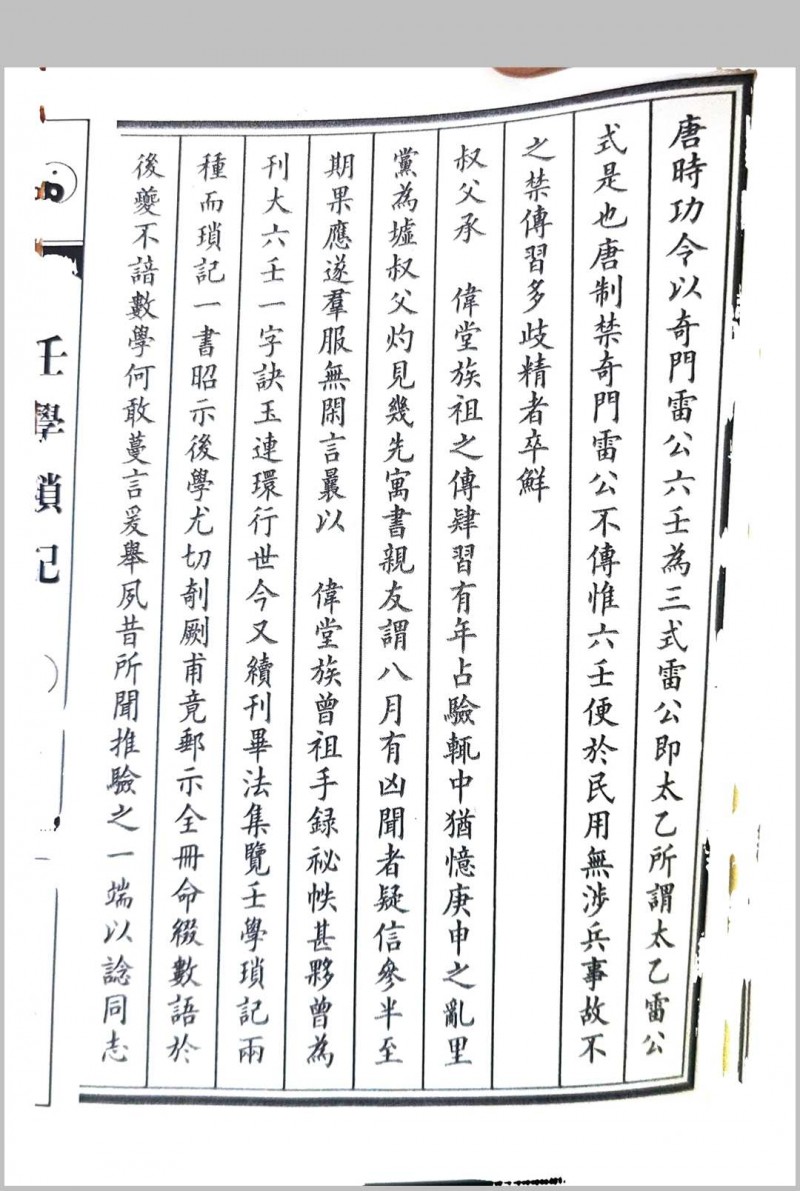 唐時功令以奇門雷公六壬為三式雷公即太乙所謂太乙雷公
式是也唐制禁奇門雷公不傳惟六壬便於民用無涉兵事故不
之禁傳習多歧精者卒鮮
叔父承　偉堂族祖之傳肄習有年占驗輒中猶憶庚申之亂里
黨為墟叔父灼見幾先寓書親友謂八月有凶聞者疑信參半至
期果應遂羣服無閑言曩以　偉堂族曾祖手録祕帙甚夥曾為
刊大六壬一字訣玉連環行世今又續刊畢法集覽壬學瑣記兩
種而瑣記一書昭示後學尤切剞劂甫竟郵示全冊命綴數語於
後夔不諳數學何敢蔓言爰舉夙昔所聞推驗之一端以諗同志
壬學瑣記